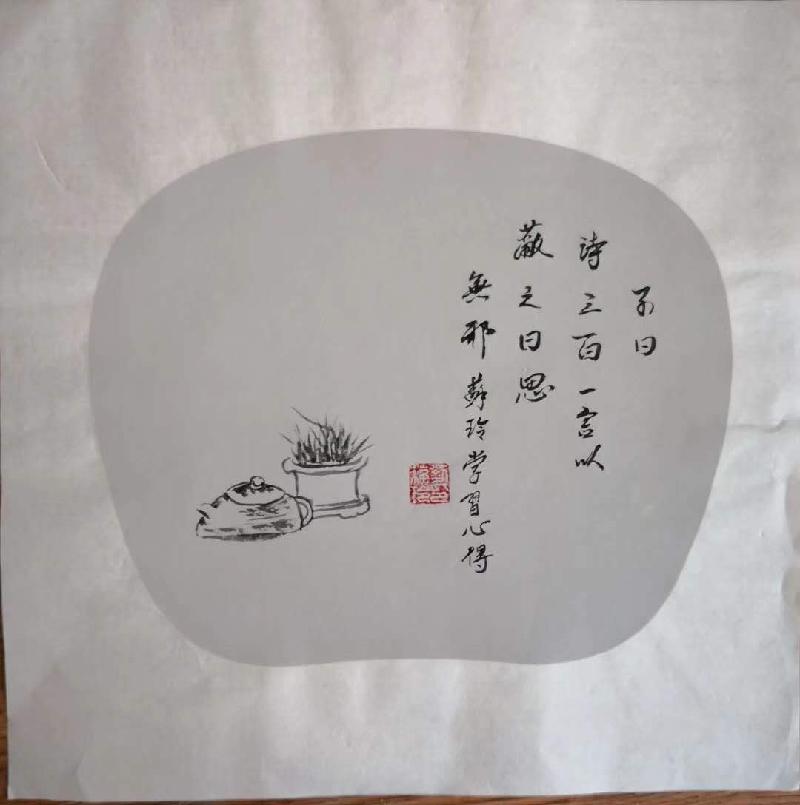 子曰
詩三百一言以
蔽之曰思
無邪 蘇玲学習心得